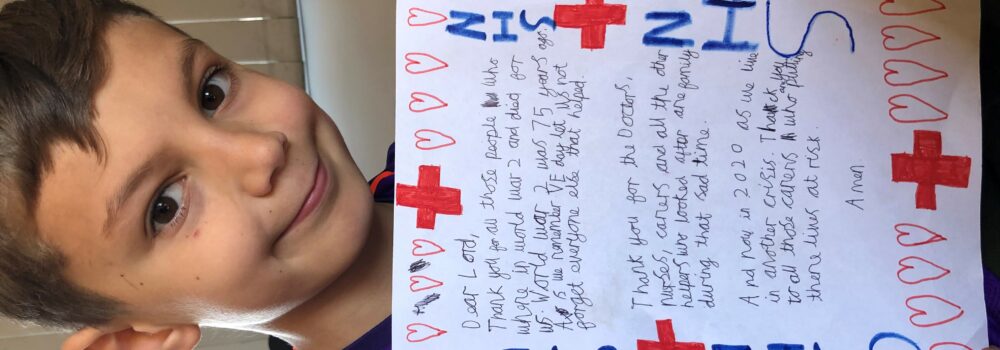 NHS
NHS
Dear Lord,
Thank you for all those people who
where in world war 2 and died for
us. World war 2 was 75 years ago.
As we remember VE day let us not
forget everyone else that helped.
Thank you for the Doctors,
nurses, carers and all the other
helpers who looked after are family
during that sad time.
And now in 2020 as we live
in another crisis. Thank you again
to all those careers who putting
there lives at risk.
Amen